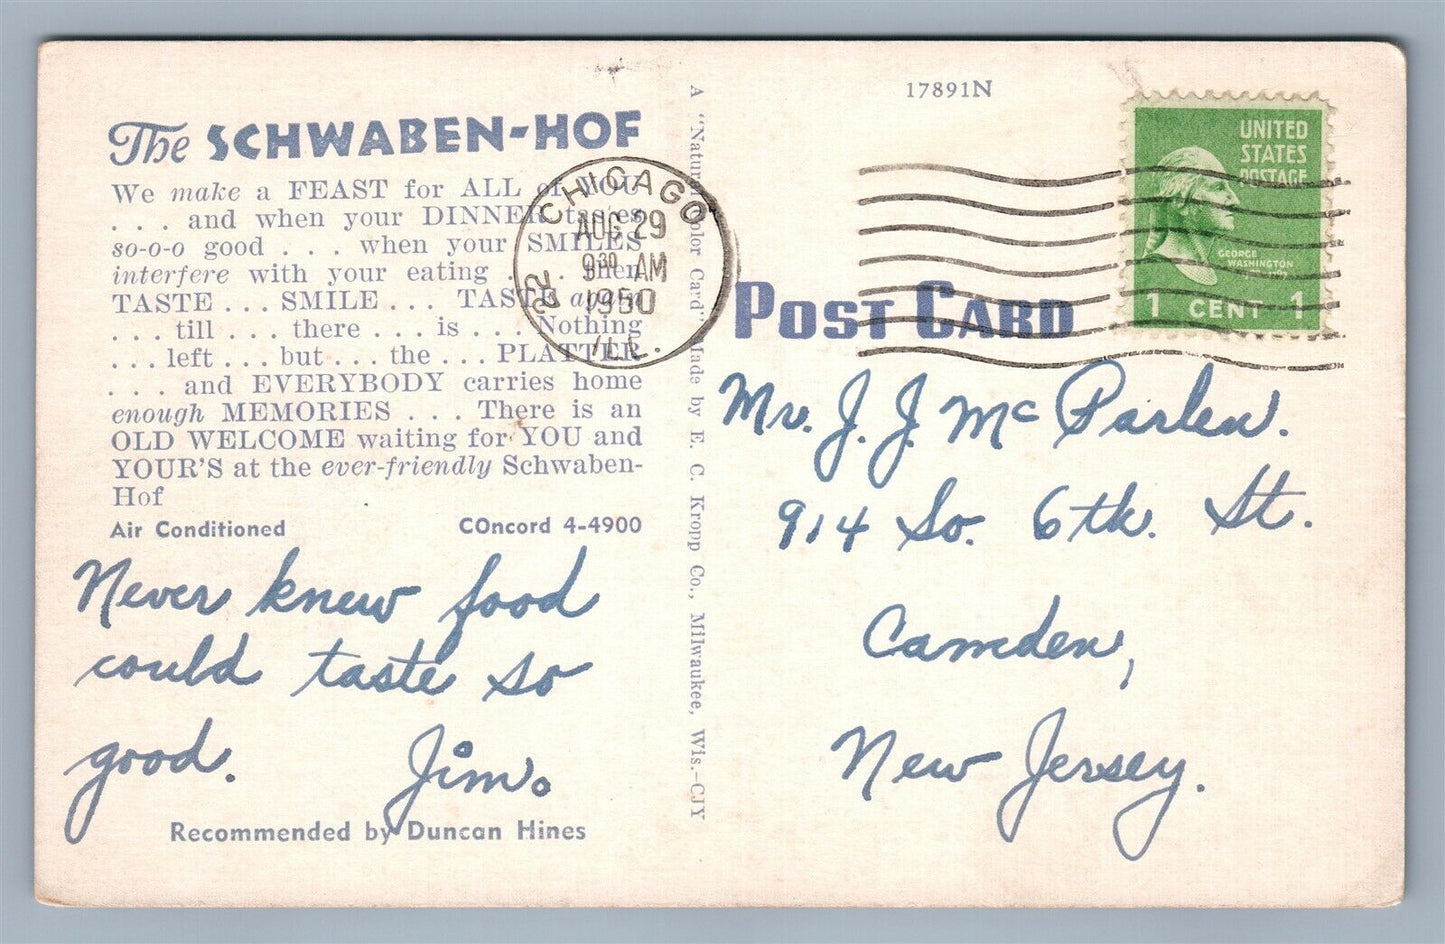 The SCHWABEN-HOF
We make a FEAST for ALL of YOU
. . . and when your DINNER tastes
so-o-o good . . . when your SMILES
interfere with your eating . . . then
TASTE . . . SMILE . . . TASTE again
. . . till . . . there . . . is . . . Nothing
. . . left . . . but . . . the . . . PLATTER
. . . and EVERYBODY carries home
enough MEMORIES . . . There is an
OLD WELCOME waiting for YOU and
YOUR'S at the ever-friendly Schwaben-
Hof
Air Conditioned COncord 4-4900
Never knew food
could taste so
good. Jim.
Recommended by Duncan Hines
A "Natural Color Card" Made by E. C. Kropp Co., Milwaukee, Wis.—CJY
CHICAGO
AUG 29
9 30 AM
1950
ILL.
17891N
UNITED
STATES
POSTAGE
GEORGE
WASHINGTON
1 CENT 1
POST CARD
Mr. J. J. McParlen.
914 So. 6th. St.
Camden,
New Jersey.